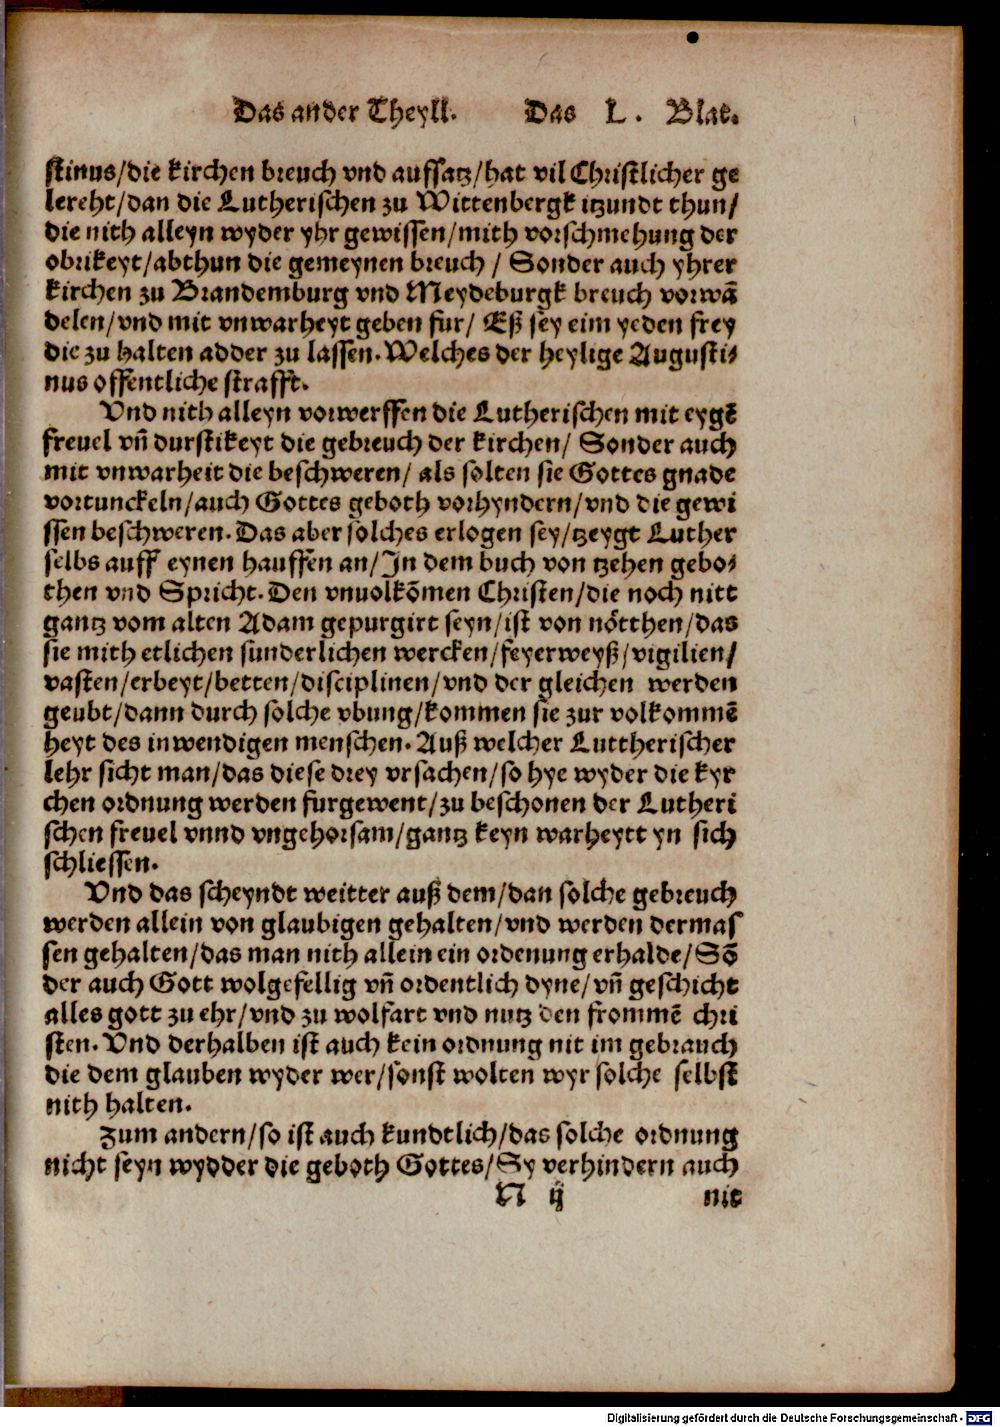 Das ander Theyll. Das L. Blat.
stinus/die kirchen breuch vnd auffsatz/hat vil Christlicher ge
lereht/dan die Lutherischen zu Wittenbergk itzundt thun/
die nith alleyn wyder yhr gewissen/mith vorschmehung der
obrikeyt/abthun die gemeynen breuch / Sonder auch yhrer
kirchen zu Brandemburg vnd Meydeburgk breuch vorwā
delen/vnd mit vnwarheyt geben fur/ Eß sey eim yeden frey
die zu halten adder zu lassen. Welches der heylige Augusti-
nus offentliche strafft.
Vnd nith alleyn vorwerffen die Lutherischen mit eygē
freuel vn̄ durstikeyt die gebreuch der kirchen/ Sonder auch
mit vnwarheit die beschweren/ als solten sie Gottes gnade
vortunckeln/auch Gottes geboth vorhyndern/vnd die gewi
ssen beschweren. Das aber solches erlogen sey/tzeygt Luther
selbs auff eynen hauffen an/In dem buch von tzehen gebo-
then vnd Spricht. Den vnuolkōmen Christen/die noch nitt
gantz vom alten Adam gepurgirt seyn/ist von nötthen/das
sie mith etlichen sunderlichen wercken/feyerweyß/vigilien/
vasten/erbeyt/betten/disciplinen/vnd der gleichen werden
geubt/dann durch solche vbung/kommen sie zur volkommē
heyt des inwendigen menschen. Auß welcher Luttherischer
lehr sicht man/das diese drey vrsachen/so hye wyder die kyr
chen ordnung werden furgewent/zu beschonen der Lutheri
schen freuel vnnd vngehorsam/gantz keyn warheytt yn sich
schliessen.
Vnd das scheyndt weitter auß dem/dan solche gebreuch
werden allein von glaubigen gehalten/vnd werden dermas
sen gehalten/das man nith allein ein ordenung erhalde/Sō
der auch Gott wolgefellig vn̄ ordentlich dyne/vn̄ geschicht
alles gott zu ehr/vnd zu wolfart vnd nutz den frommē chri
sten. Vnd derhalben ist auch kein ordnung nit im gebrauch
die dem glauben wyder wer/sonst wolten wyr solche selbst
nith halten.
Zum andern/so ist auch kundtlich/das solche ordnung
nicht seyn wydder die geboth Gottes/Sy verhindern auch
N ij nit
Digitalisierung gefördert durch die Deutsche Forschungsgemeinschaft - DFG